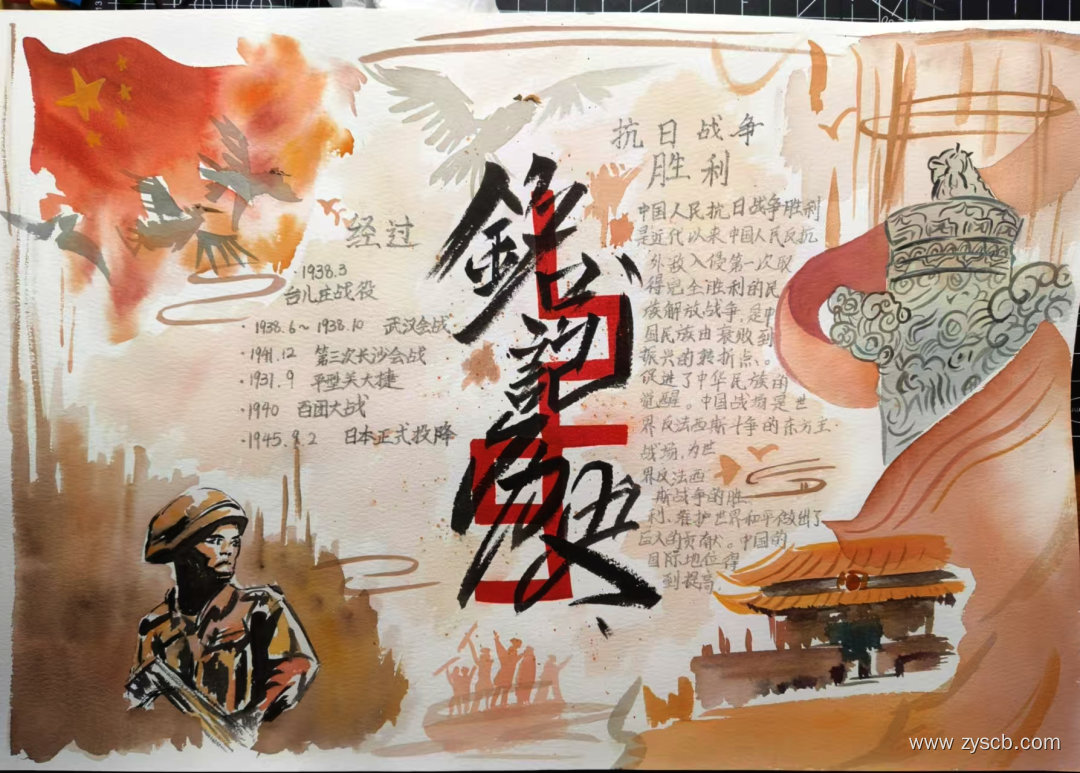 抗日战争
胜利
銘記
历史
经过
·1938.3
台儿庄战役
·1938.6~1938.10 武汉会战
·1941.12 第三次长沙会战
·1931.9 平型关大捷
·1940 百团大战
·1945.9.2 日本正式投降
中国人民抗日战争胜利
是近代以来中国人民反抗
外敌入侵第一次取
得完全胜利的民
族解放战争,是中
国民族由衰败到
振兴的转折点。
促进了中华民族的
觉醒。中国战场是世
界反法西斯斗争的东方主
战场,为世
界反法西
斯战争的胜
利、维护世界和平做出了
巨大的贡献。中国的
国际地位得
到提高
www.zyscb.com